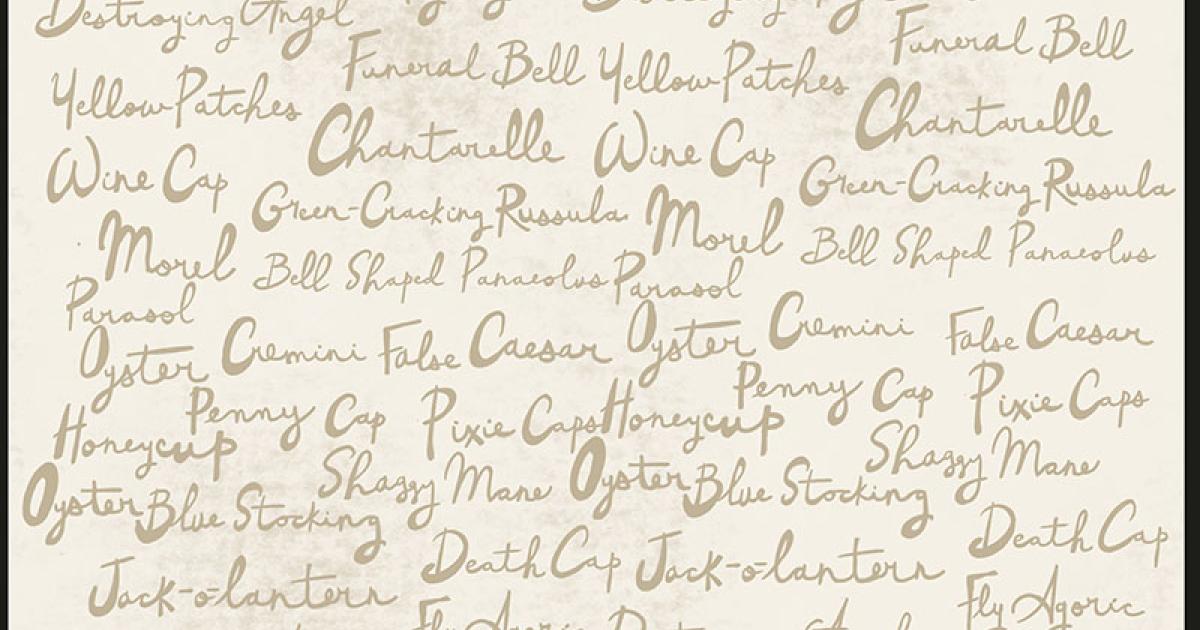 Destroying Angel
Funeral Bell
Funeral Bell
Yellow Patches
Yellow Patches
Chantarelle
Chantarelle
Wine Cap
Wine Cap
Green-Cracking Russula
Green-Cracking Russula
Morel
Morel
Bell Shaped Panaeolus
Bell Shaped Panaeolus
Parasol
Parasol
Oyster Cremini False Caesar
Oyster Cremini False Caesar
Penny Cap Pixie Caps
Penny Cap Pixie Caps
Honeycup
Honeycup
Shaggy Mane
Shaggy Mane
Oyster Blue Stocking
Oyster Blue Stocking
Death Cap
Death Cap
Jack-o-lantern
Jack-o-lantern
Fly Agaric
Fly Agoric